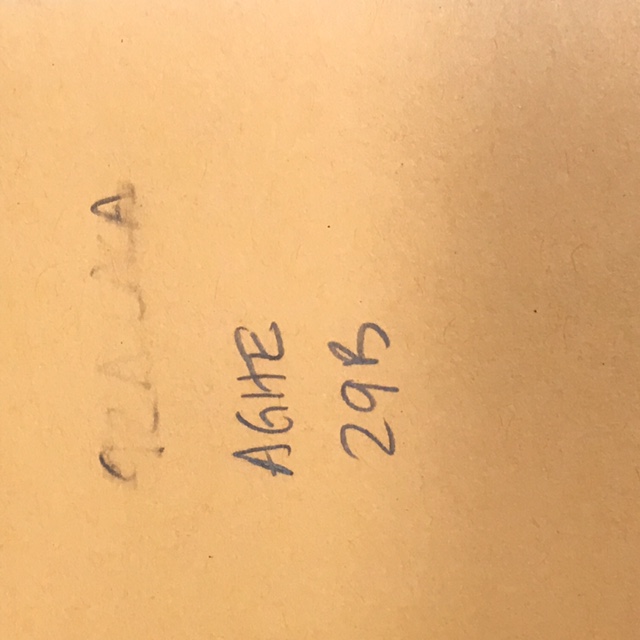 AGHE
29B